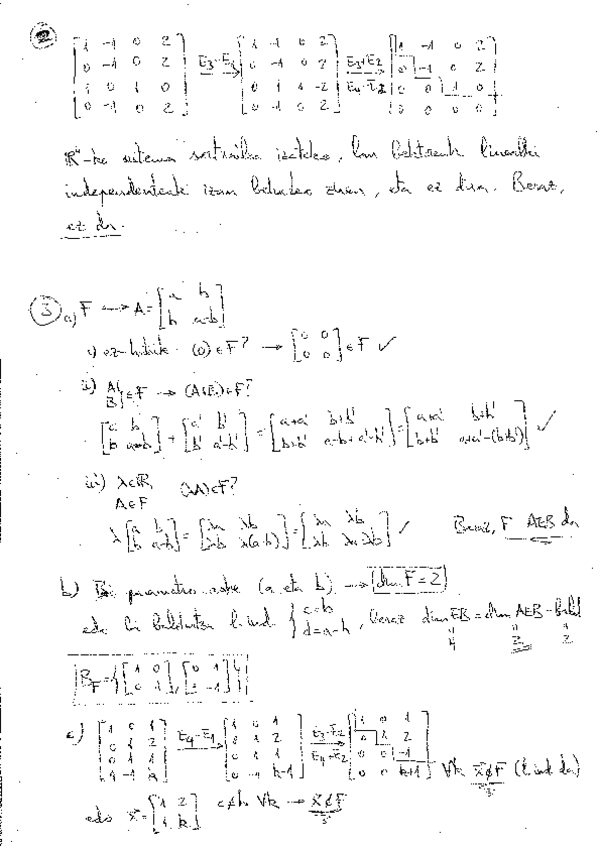 2
[1 -1 0 2 / 0 -1 0 2 / 1 0 1 0 / 0 -1 0 2] E3-E1 → [1 -1 0 2 / 0 -1 0 2 / 0 1 1 -2 / 0 -1 0 2] E3+E2 E4-E2 → [1 -1 0 2 / 0 -1 0 2 / 0 0 1 0 / 0 0 0 0]
ℝ⁴-ko sistema sortzailea izateko, lau bektoreak linealki
independenteak izan beharko ziren, eta ez dira. Beraz,
ez da.
3 a) F → A=[a b / b a-b]
i) ez-hutsik (0)∈F? → [0 0 / 0 0]∈F ✓
ii) A, B∈F → (A+B)∈F?
[a b / b a-b] + [a' b' / b' a'-b'] = [a+a' b+b' / b+b' a-b+a'-b'] = [a+a' b+b' / b+b' a+a'-(b+b')] ✓
iii) λ∈ℝ A∈F (λA)∈F?
λ[a b / b a-b] = [λa λb / λb λ(a-b)] = [λa λb / λb λa-λb] ✓ Beraz, F AEB da
b) Bi parametro aske (a eta b) → dim F=2
edo bi baldintza l.ind {c=b d=a-b, beraz dim EB = dim AEB - Bald
4 2 2
B_F={[1 0 / 0 1], [0 1 / 1 -1]}
c) [1 0 1 / 0 1 2 / 0 1 1 / 1 -1 k] E4-E1 → [1 0 1 / 0 1 2 / 0 1 1 / 0 -1 k-1] E3-E2 E4+E2 → [1 0 1 / 0 1 2 / 0 0 -1 / 0 0 k+1] ∀k x∉F (l.ind da)
edo x=[1 2 / 1 k] c≠b ∀k → x∉F